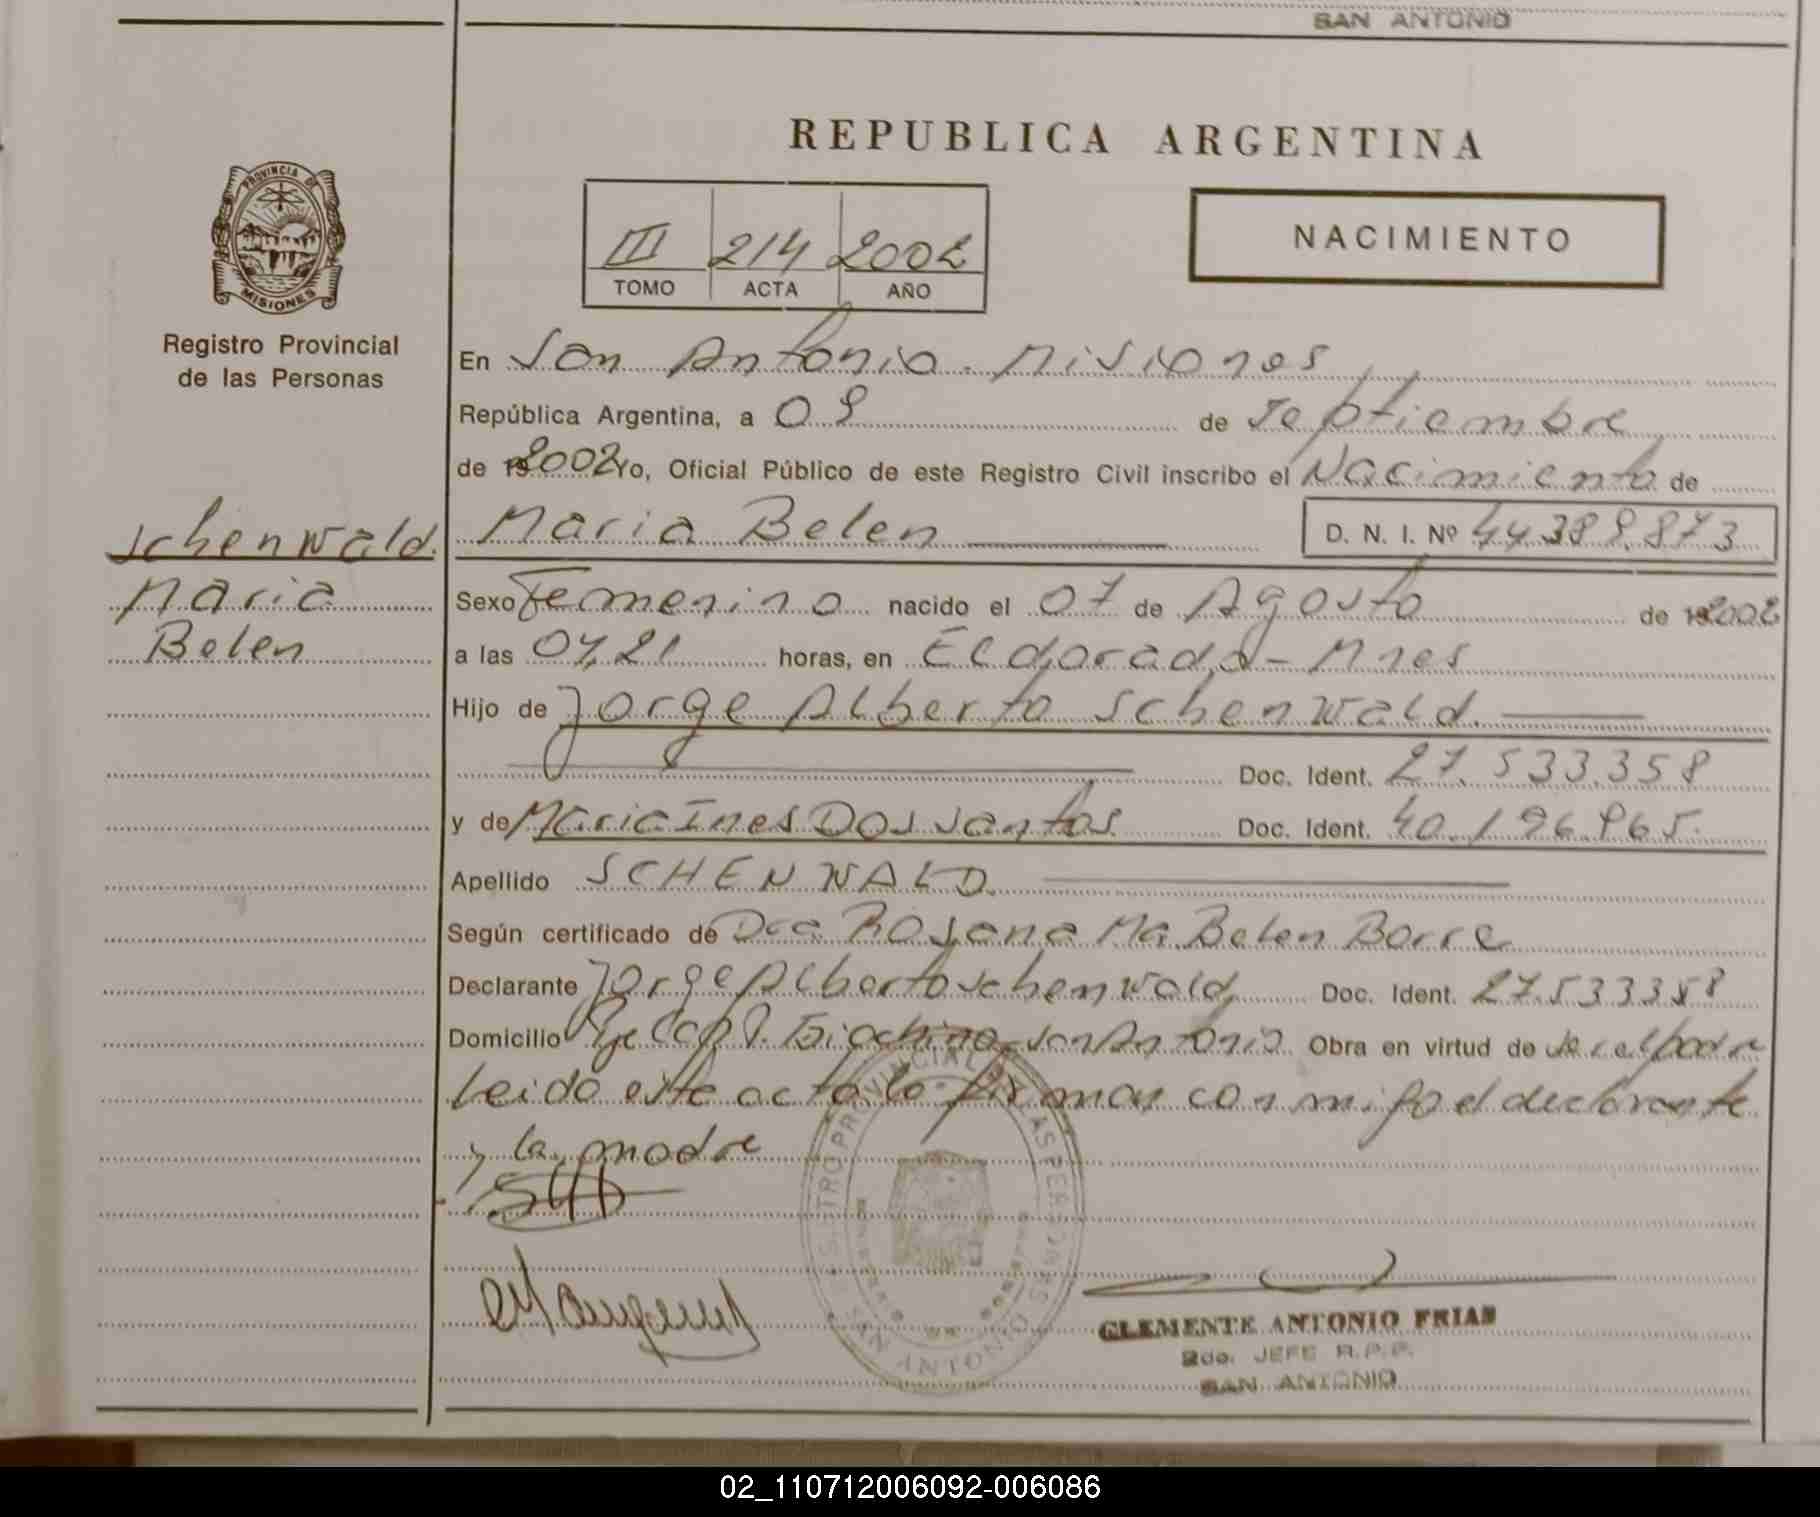 SAN ANTONIO
REPUBLICA ARGENTINA
PROVINCIA DE
MISIONES
Registro Provincial
de las Personas
III 214 2002
TOMO ACTA AÑO
NACIMIENTO
En San Antonio. Misiones
República Argentina, a 09 de Septiembre
de 192002 Yo, Oficial Público de este Registro Civil inscribo el Nacimiento de
Schenwald Maria Belen D. N. I. Nº 44.389.873
Maria Sexo Femenino nacido el 07 de Agosto de 192002
Belen a las 04,21 horas, en Eldorado - Mnes
Hijo de Jorge Alberto Schenwald.
Doc. Ident. 27.533.358
y de Maria Ines Dos Santos Doc. Ident. 40.196.965.
Apellido SCHENWALD.
Según certificado de Dra Rosana Ma Belen Borre
Declarante Jorge Alberto Schenwald Doc. Ident. 27.533358
Domicilio Pje Cap. San Antonio Obra en virtud de ser el padre
Leido este acta lo firman con migo el declarante
y la madre
REGISTRO PROVINCIAL DE LAS PERSONAS
SAN ANTONIO
CLEMENTE ANTONIO FRIAS
2do. JEFE R.P.P.
SAN ANTONIO
02_110712006092-006086